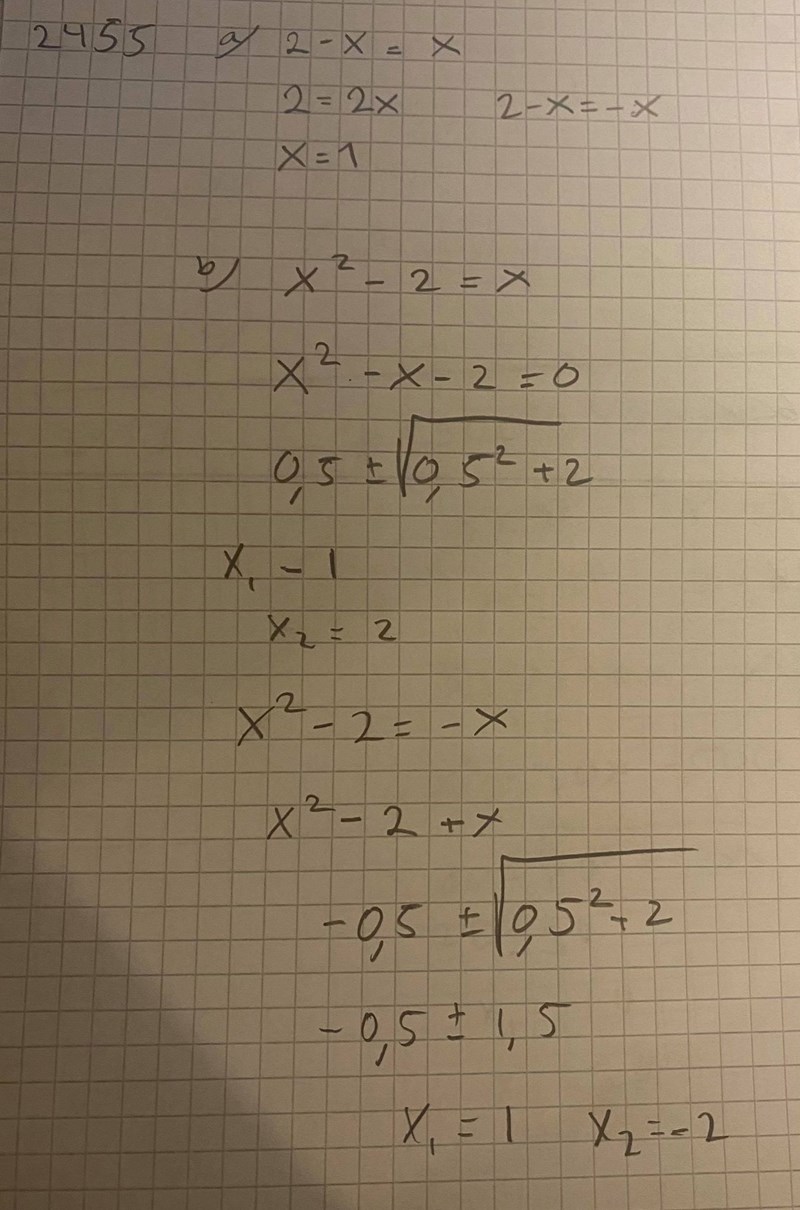 2455 a) 2-x = x
2 = 2x 2-x=-x
x=1
b) x² - 2 = x
x² - x - 2 = 0
0,5 ± √0,5² + 2
x₁ - 1
x₂ = 2
x² - 2 = -x
x² - 2 + x
-0,5 ± √0,5² + 2
-0,5 ± 1,5
x₁ = 1 x₂ = -2